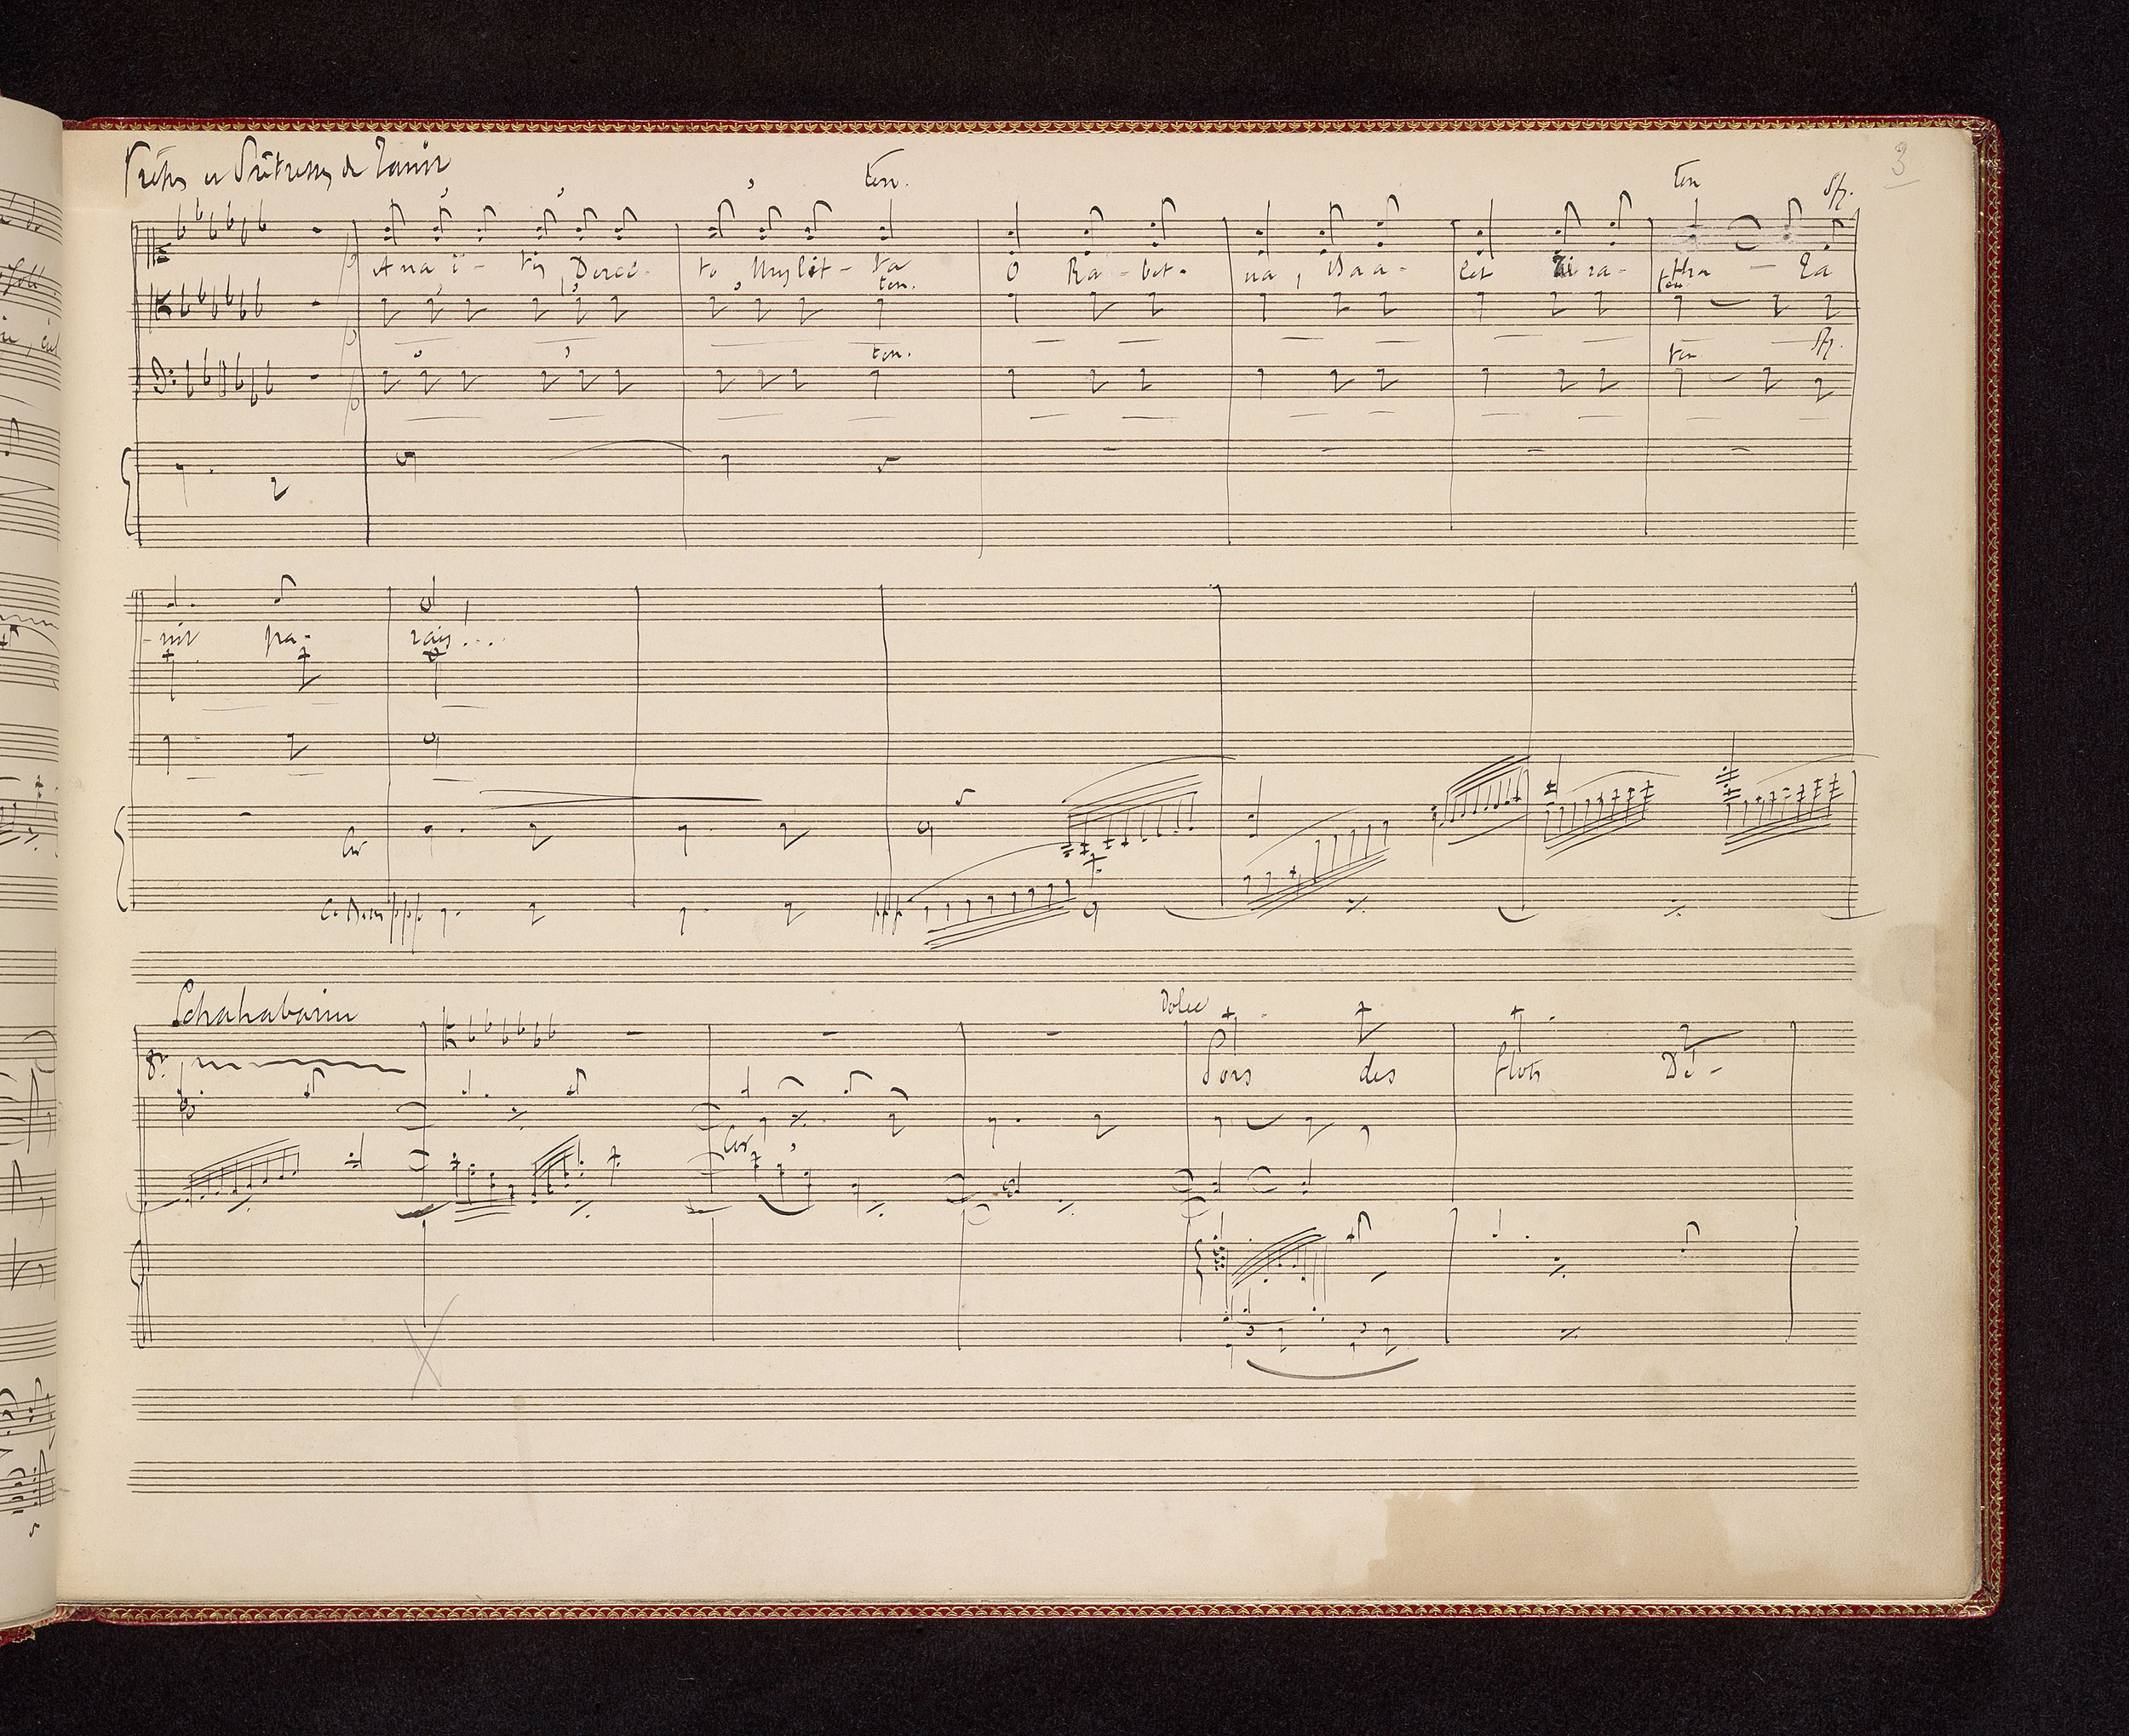 3
Prêtres et Prêtresses de Tanit
ten. ten sfz.
Ana ï - tis Dercé - to Mylit - ta O Ra - bet - na, Baa - let Tira - tha - Ta
ten. ten
ten. ten sfz.
- nit pa - rais!...
Cor
ppp ppp
Schahabarim
Dolce
8va
Sors des flots Dé -
Cor